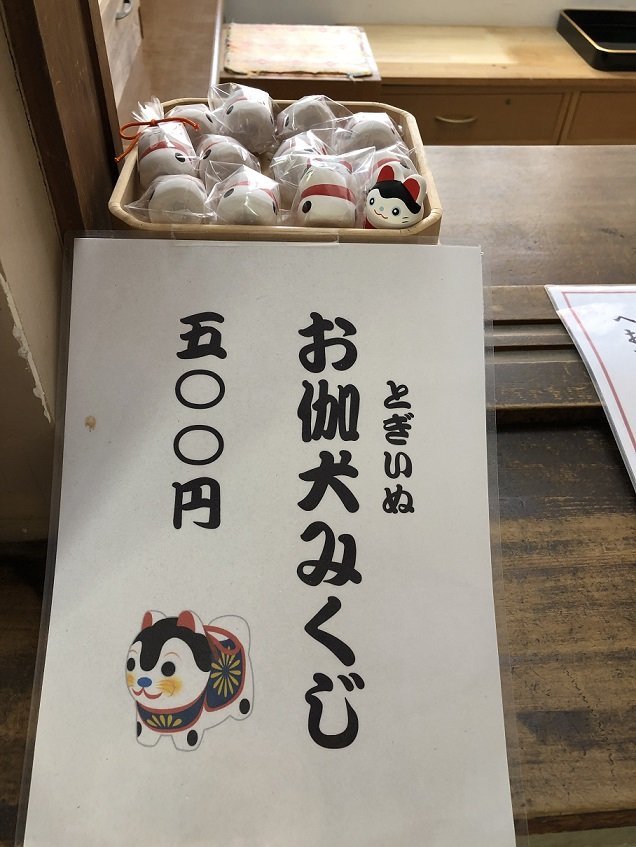 とぎいぬ
お伽犬みくじ
五〇〇円